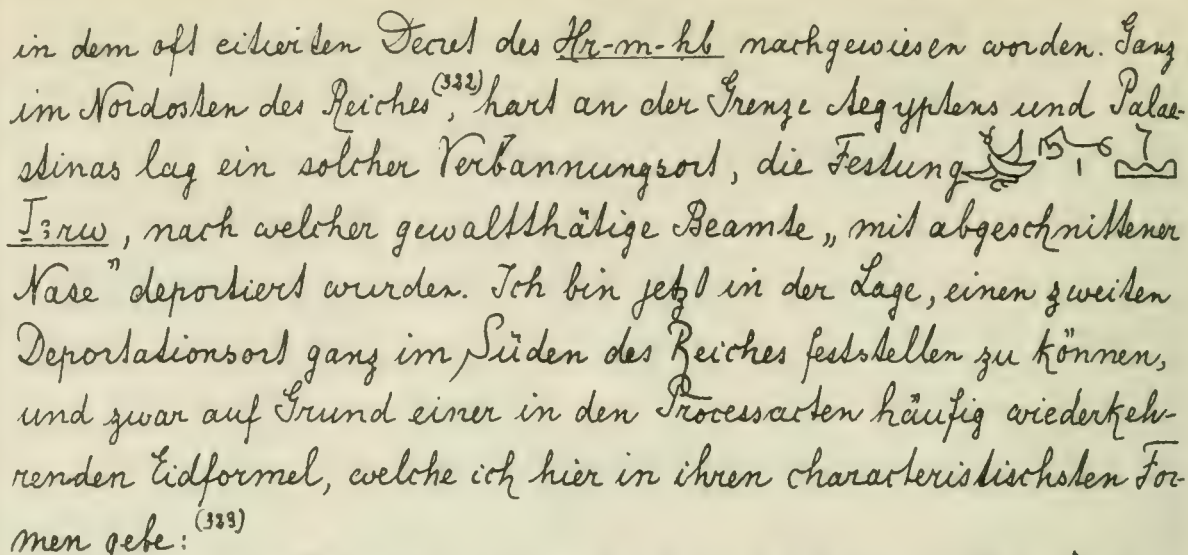 in dem oft citierten Decret des Hr-m-hb nachgewiesen worden. Ganz
im Nordosten des Reiches(322), hart an der Grenze Aegyptens und Palae-
stinas lag ein solcher Verbannungsort, die Festung
Ṯꜣrw, nach welcher gewaltthätige Beamte „mit abgeschnittener
Nase" deportiert wurden. Ich bin jetzt in der Lage, einen zweiten
Deportationsort ganz im Süden des Reiches feststellen zu können,
und zwar auf Grund einer in den Processacten häufig wiederkeh-
renden Eidformel, welche ich hier in ihren characteristischsten For-
men gebe:(323)